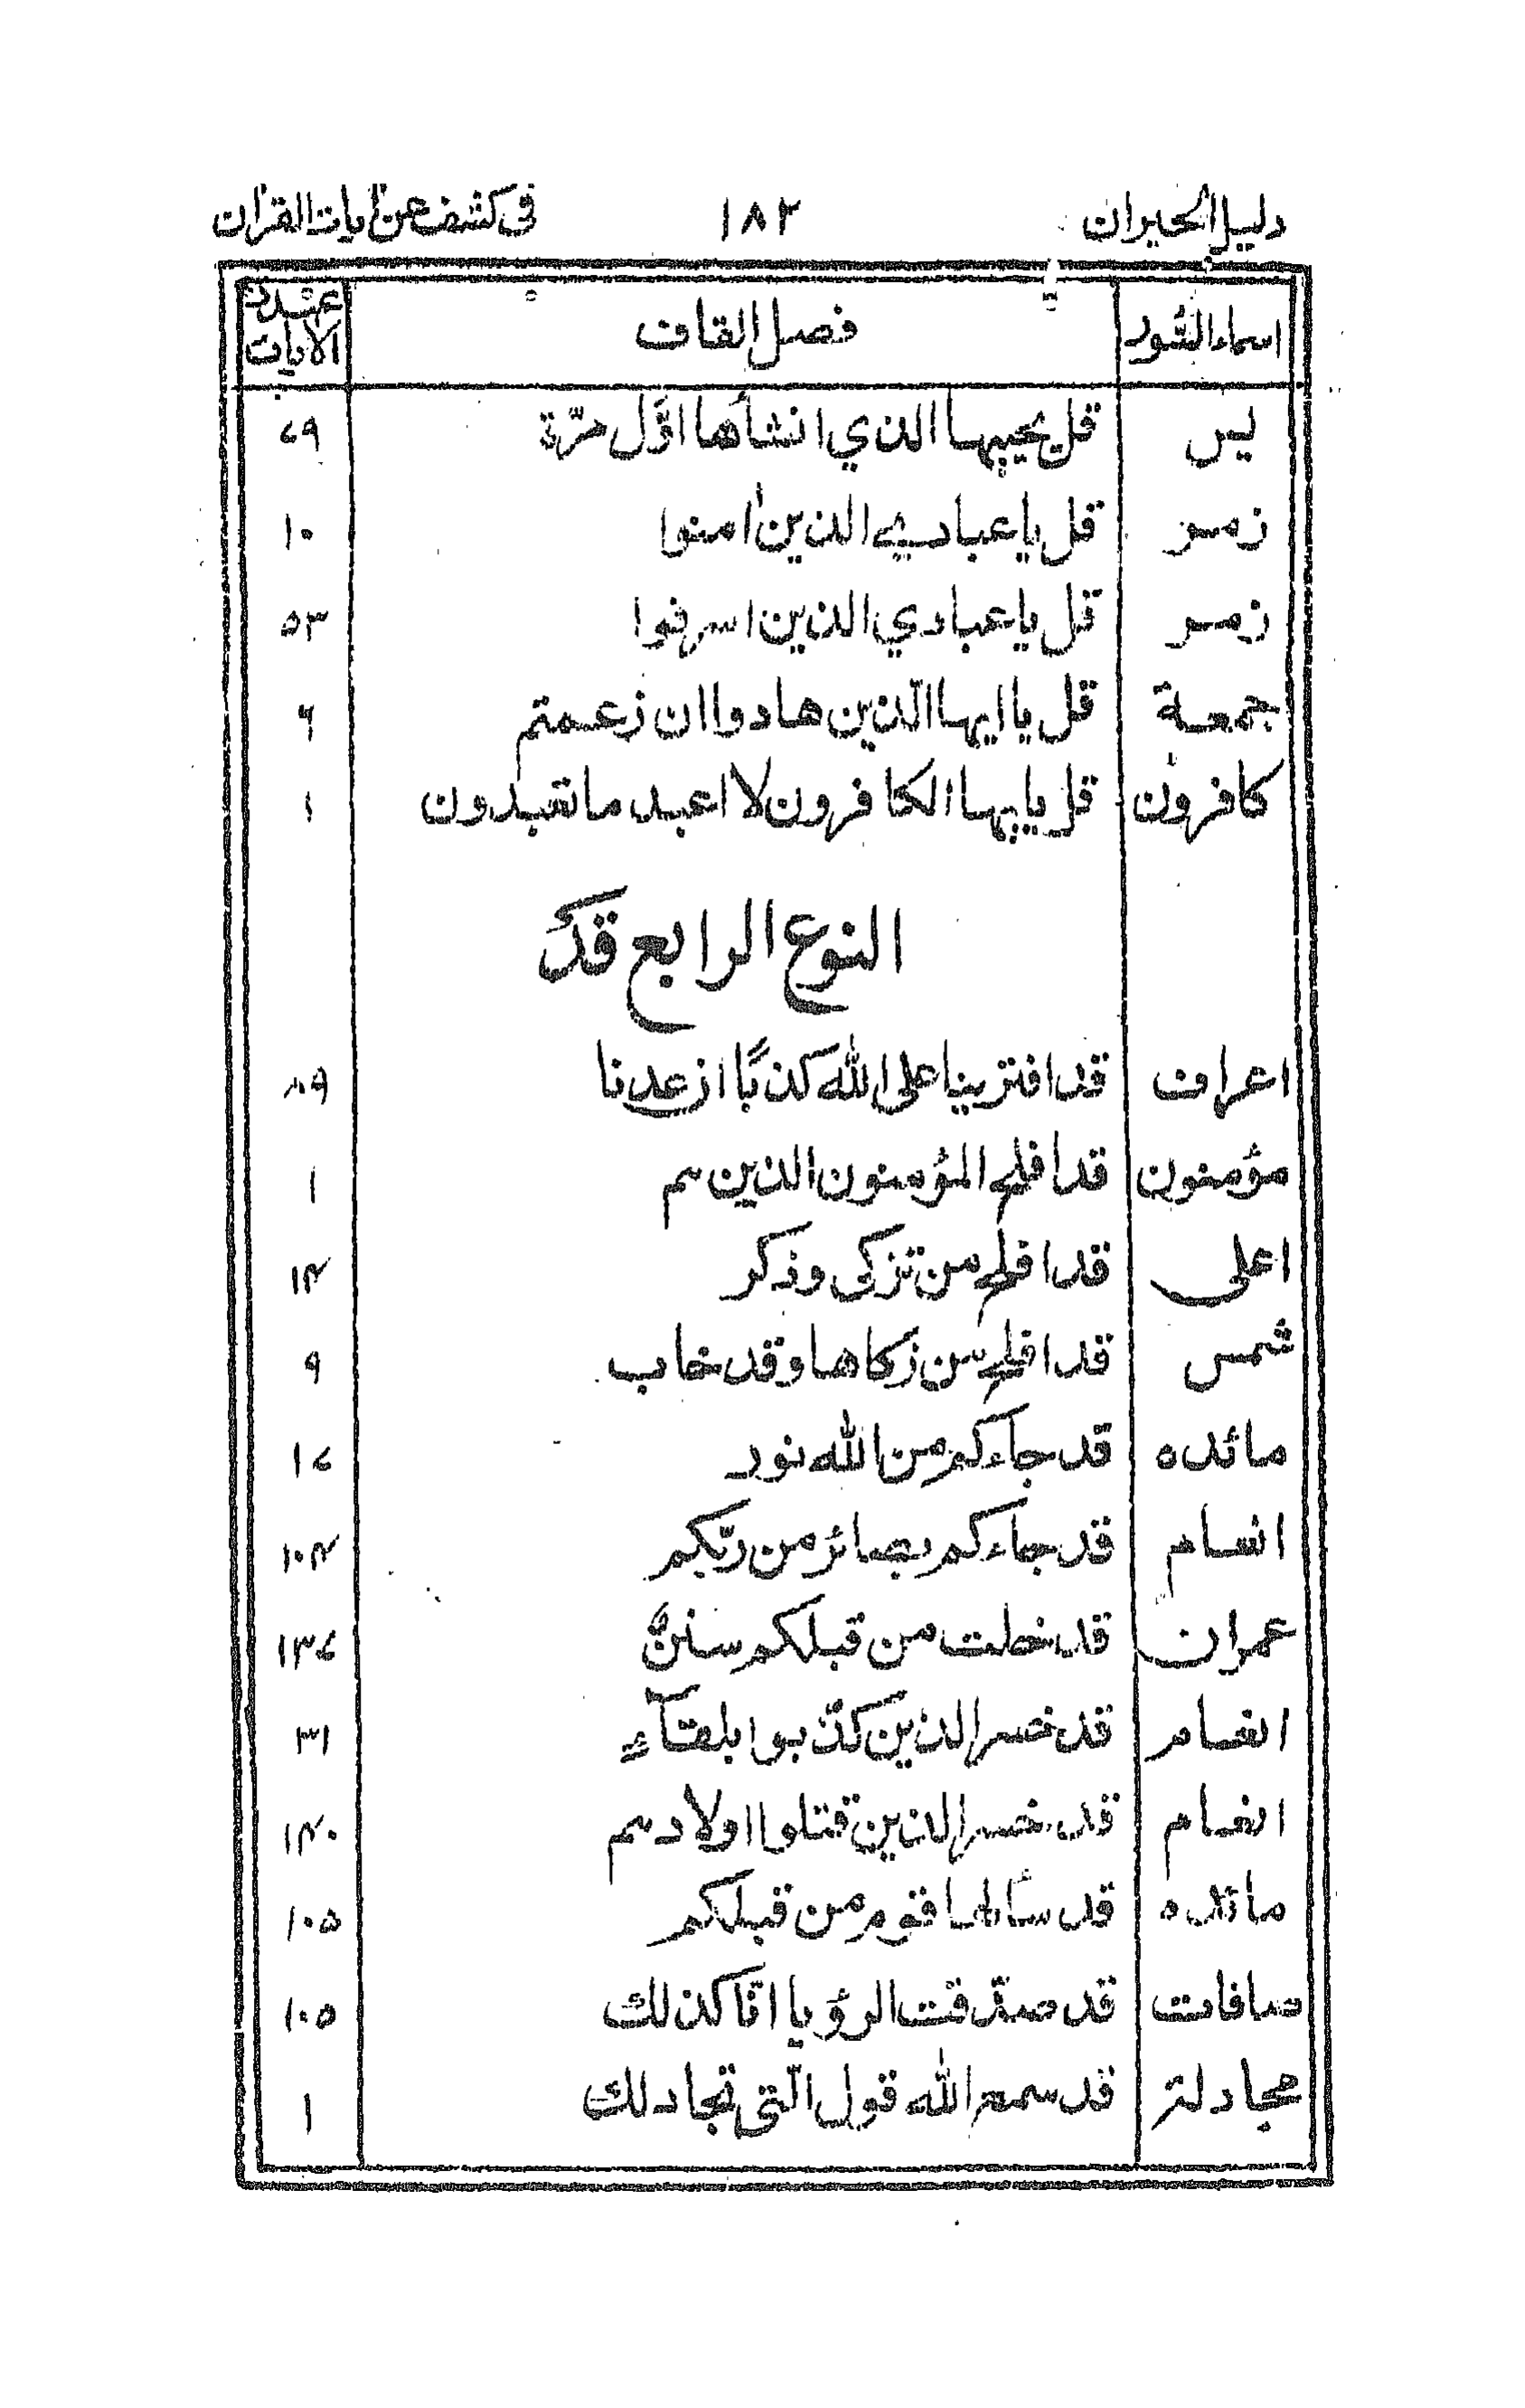 دليل الحيران ١٨٢ فى كشف عن اٰيات القراٰن
اسماء السُّور فصل القاف عدد الاٰيات
يس قل يحييها الذي انشأها اوّل مرّة ٧٩
زمر قل يا عبادي الذين اٰمنوا ١٠
زمر قل يا عبادي الذين اسرفوا ٥٣
جمعة قل يا ايها الّذين هادوا ان زعمتم ٦
كافرون قل يايها الكافرون لا اعبد ما تعبدون ١
النوع الرابع قدْ
اعراف قد افترينا على الله كذبًا ان عدنا ٨٩
مؤمنون قد افلح المؤمنون الذين هم ١
اعلى قد افلح من تزكى وذكر ١٤
شمس قد افلح من زكاها وقد خاب ٩
مائده قد جاءكم من الله نور ١٧
انعام قد جاءكم بصائر من ربّكم ١٠٤
عمران قد خلت من قبلكم سننٌ ١٣٧
انعام قد خسر الذين كذّبوا بلقآءِ ٣١
انعام قد خسر الذين قتلوا اولادهم ١٤٠
مائده قد سألها قوم من قبلكم ١٠٥
صافات قد صدّقت الرؤيا انّا كذلك ١٠٥
مجادلة قد سمع الله قول الّتى تجادلك ١